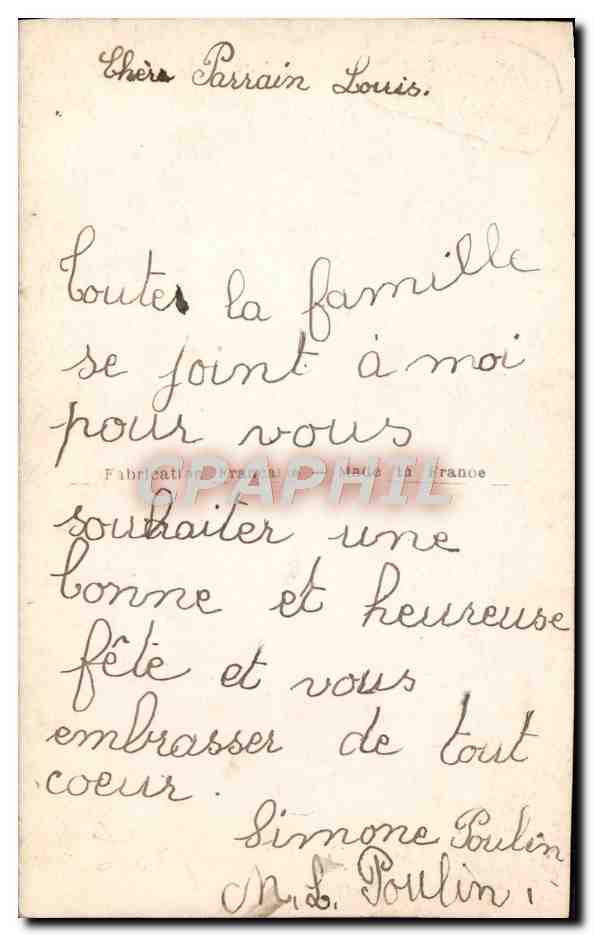 Chère Parrain Louis.
Toutes la famille
se joint à moi
pour vous
Fabrication Française — Made in France
CPAPHIL
souhaiter une
bonne et heureuse
fête et vous
embrasser de tout
coeur.
Simone Poulin
M. L. Poulin.